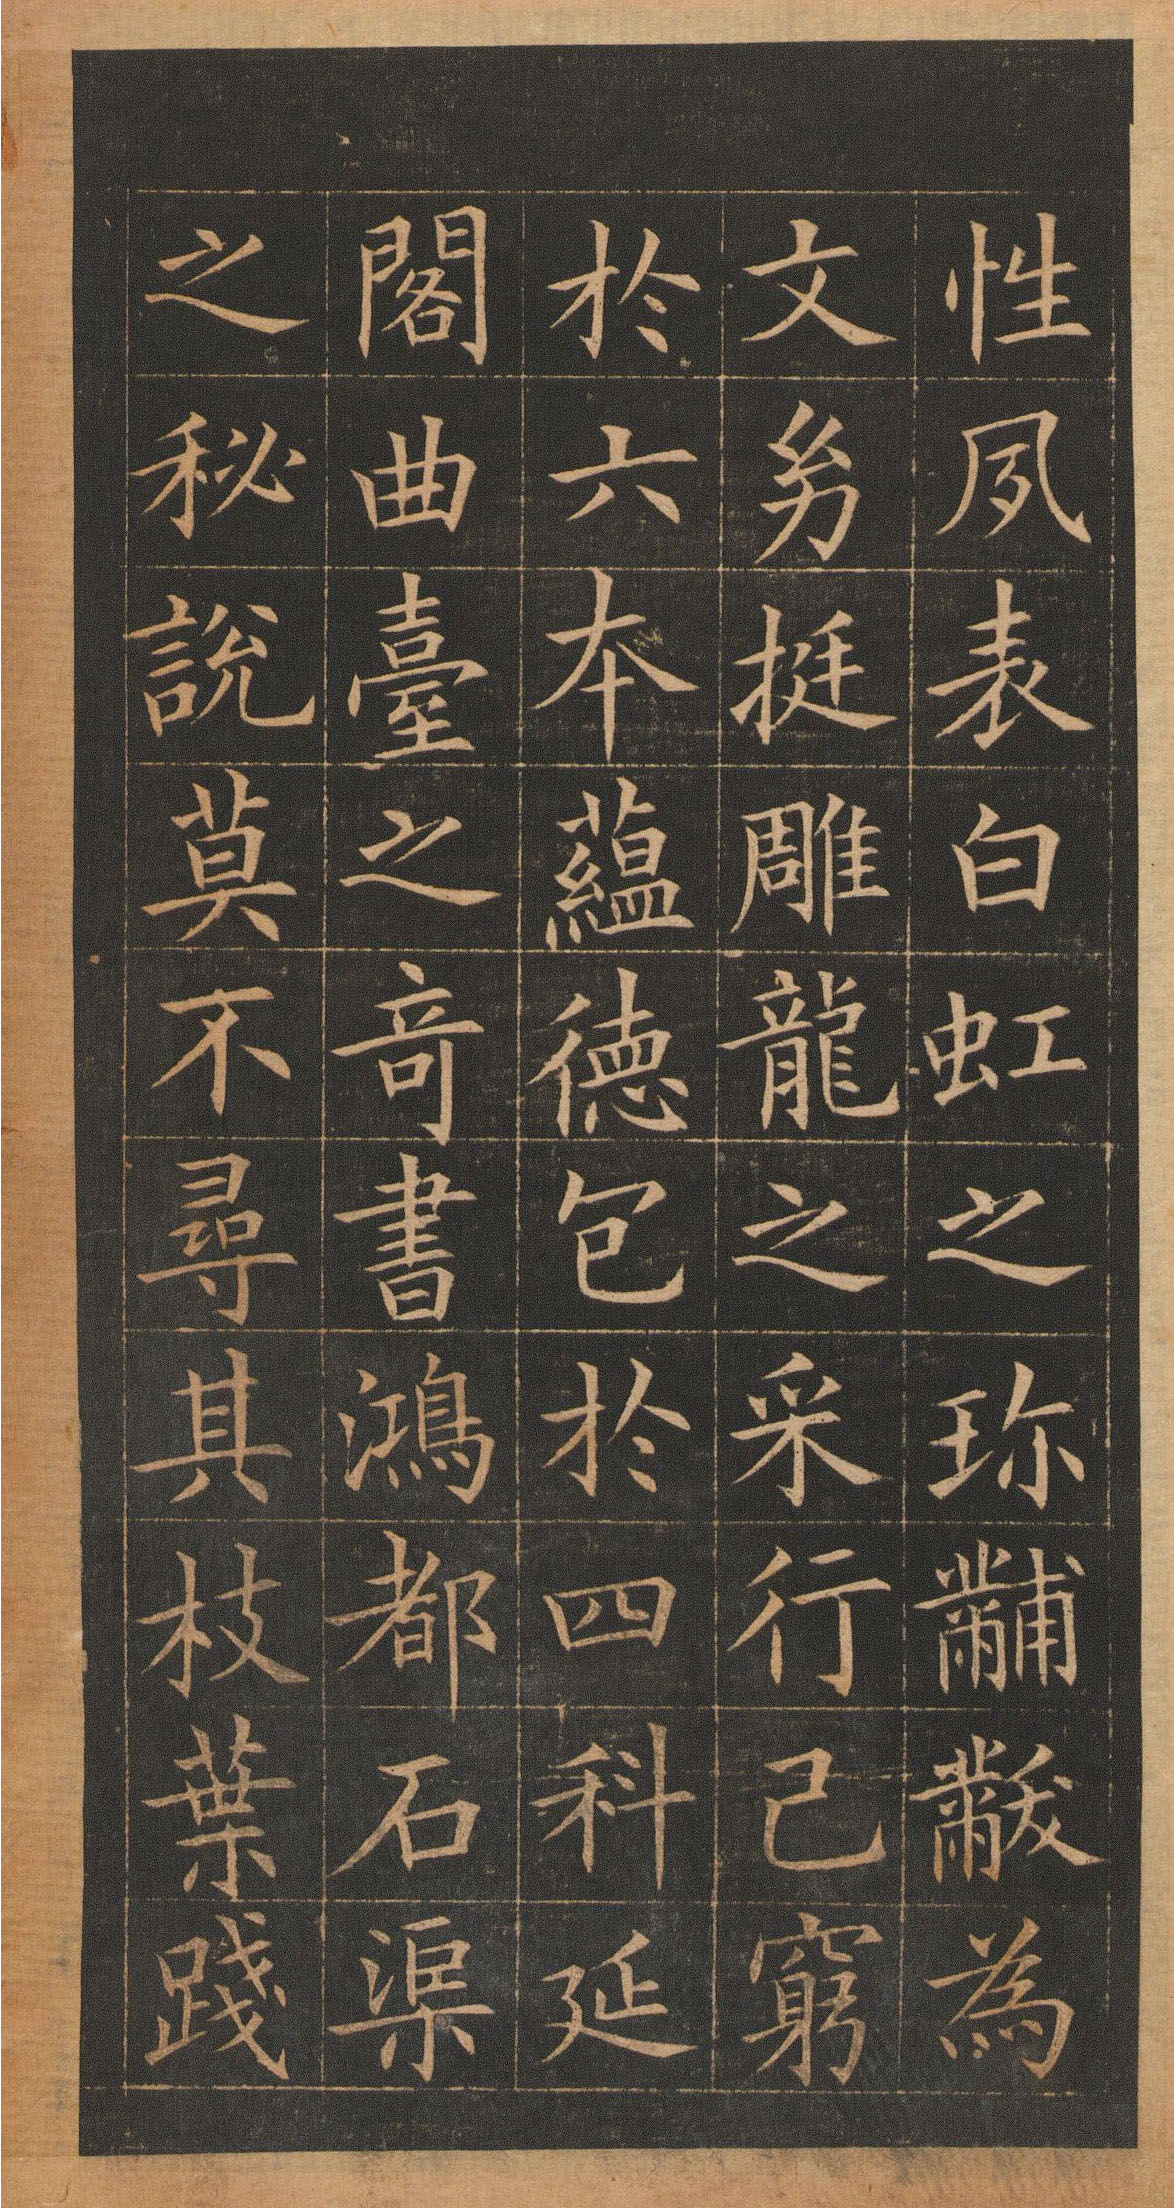 性夙表白虹之珎黼黻為
文㓜挺雕龍之采行己窮
於六夲蘊德包於四科延
閣曲臺之竒書鴻都石渠
之秘說莫不尋其枝葉踐